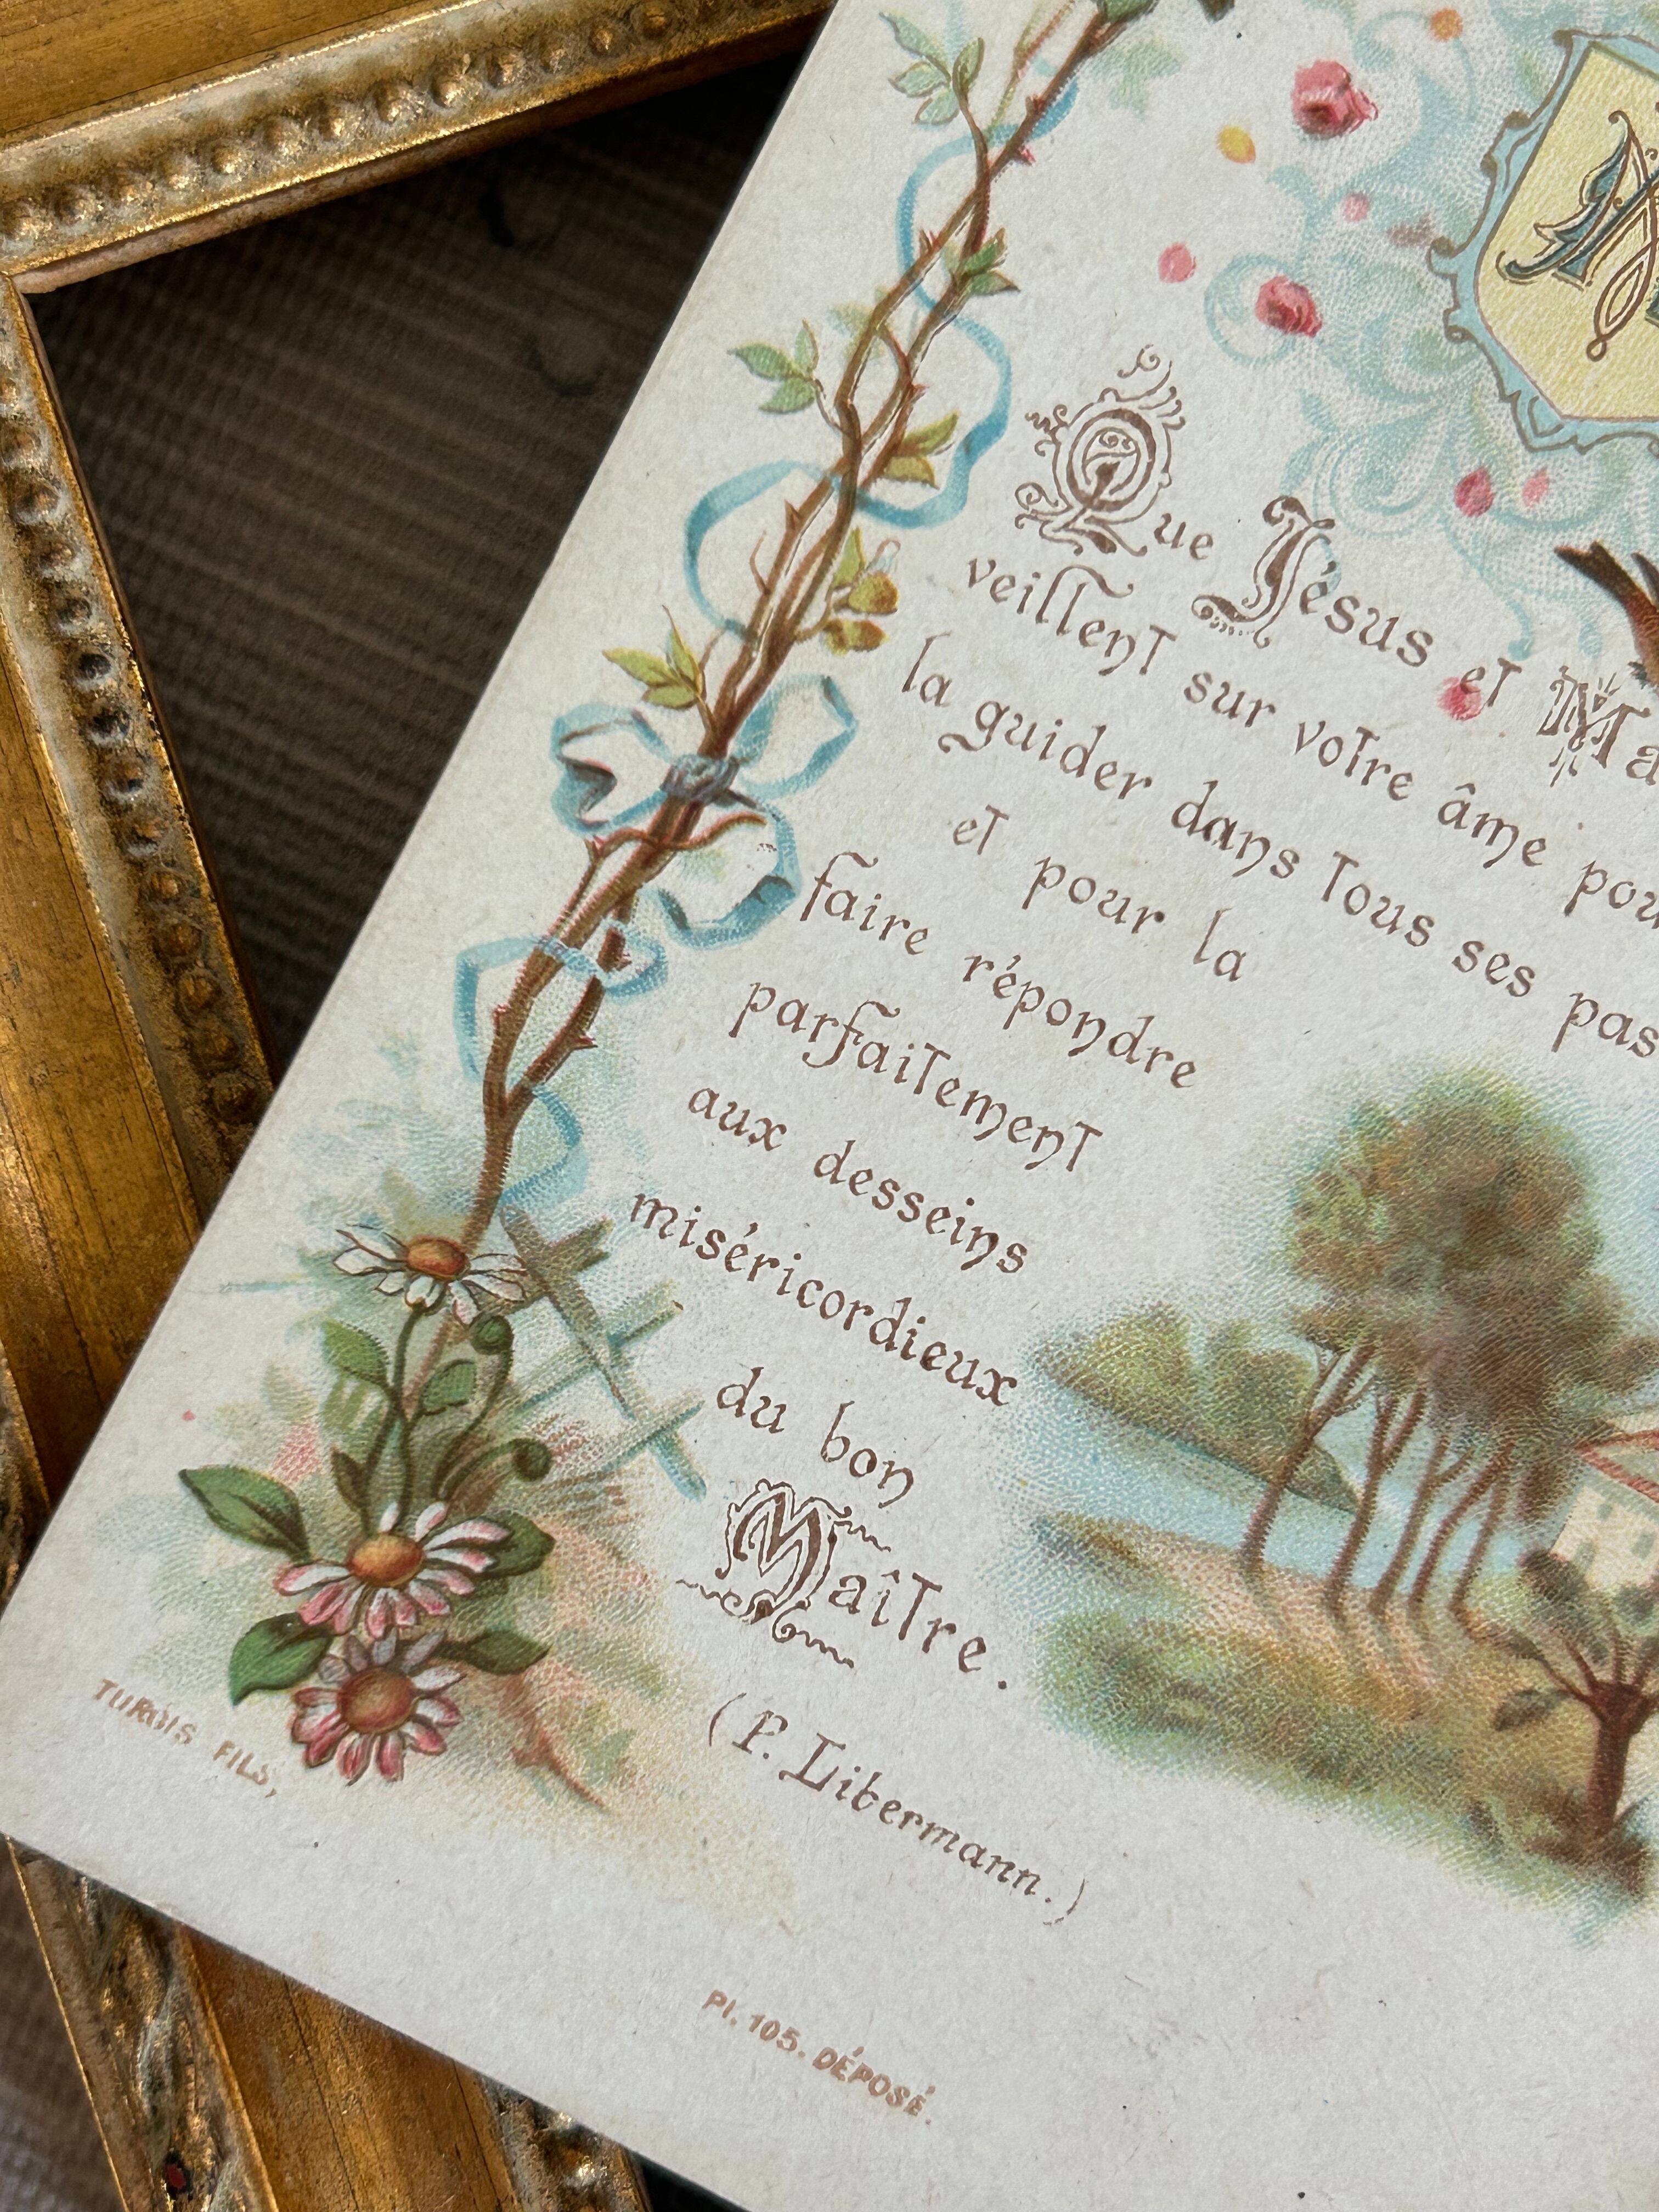 Que Jésus et Ma
veillent sur votre âme pou
la guider dans tous ses pas
et pour la
faire répondre
parfaitement
aux desseins
miséricordieux
du bon
Maître.
(P. Libermann.)
TURGIS FILS,
Pl. 105. DÉPOSÉ.